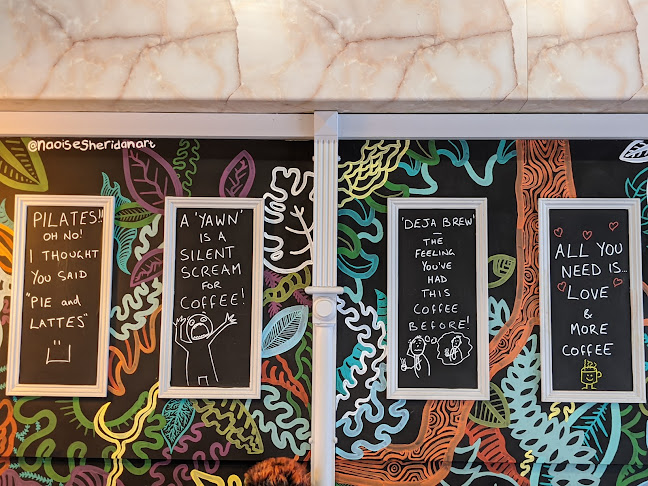 @naoisesheridanart
PILATES!!
OH NO!
I THOUGHT
YOU SAID
"PIE and
LATTES"
A 'YAWN'
IS A
SILENT
SCREAM
FOR
COFFEE!
'DEJA BREW'
—
THE
FEELING
YOU'VE
HAD
THIS
COFFEE
BEFORE!
ALL YOU
NEED IS...
LOVE
&
MORE
COFFEE